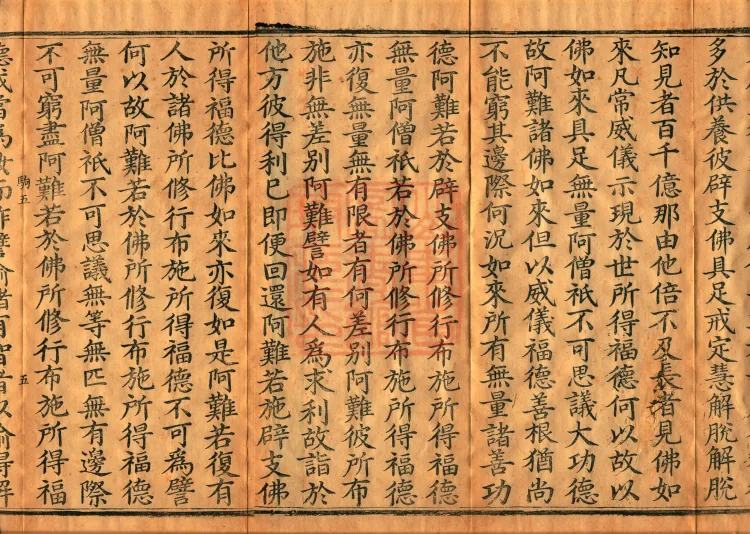 多於供養彼辟支佛具足戒定慧解脫解脫
知見者百千億那由他倍不及長者見佛如
來凡常威儀示現於世所得福德何以故以
佛如來具足無量阿僧祇不可思議大功德
故阿難諸佛如來但以威儀福德善根猶尚
不能窮其邊際何況如來所有無量諸善功
德阿難若於辟支佛所修行布施所得福德
無量阿僧祇若於佛所修行布施所得福德
亦復無量無有限者有何差別阿難彼所布
施非無差別阿難譬如有人爲求利故詣於
他方彼得利已即便回還阿難若施辟支佛
所得福德比佛如來亦復如是阿難若復有
人於諸佛所修行布施所得福德不可爲譬
何以故阿難若於佛所修行布施所得福德
無量阿僧祇不可思議無等無匹無有邊際
不可窮盡阿難若於佛所修行布施所得福
駒五
五